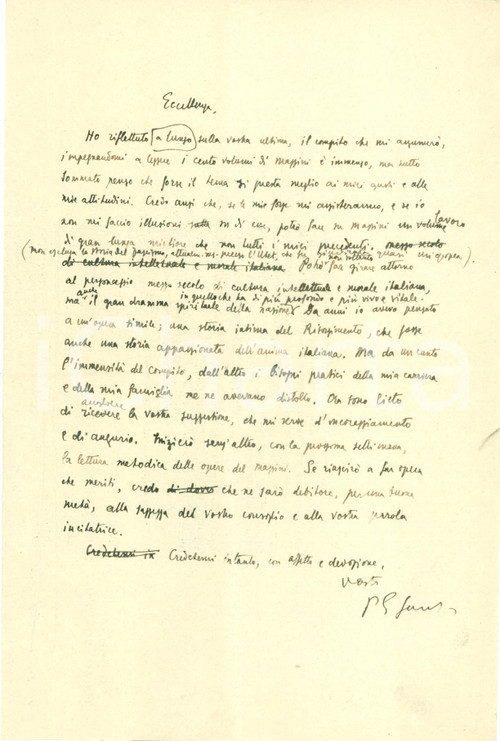 Eccellenza,
Ho riflettuto a lungo sulla vostra ultima, il compito che mi assumerò,
impegnandomi a leggere i cento volumi di Mazzini è immenso, ma tutto
sommato penso che forse il tema si presta meglio ai miei gusti e alle
mie attitudini. Credo anzi che, se le mie forze mi assisteranno, e se io
non mi faccio illusioni su di esse, potrò fare su Mazzini un lavoro
di gran lunga migliore che non tutti i miei precedenti. mezzo secolo
(non esclusa la storia del fascismo, attualm. presso l'Ubet, che ho quasi un'opera).
di cultura intellettuale e morale italiana Potrò far girare attorno
al personaggio mezzo secolo di cultura intellettuale e morale italiana,
in quello che ha di più profondo e più vivo e vitale.
ma anche il gran dramma spirituale della nazione. Da anni io avevo pensato
a un'opera simile; una storia intima del Risorgimento, che fosse
anche una storia appassionata dell'anima italiana. Ma da un canto
l'immensità del compito, dall'altro i bisogni pratici della mia carriera
e della mia famiglia me ne avevano distolto. Ora sono lieto
di ricevere la vostra suggestione, che mi serve d'incoraggiamento
e di augurio. Inizierò senz'altro, con la prossima settimana,
la lettura metodica delle opere del Mazzini. Se riuscirò a far opera
che meriti, credo di dover che ne sarò debitore, per una buona
metà, alla saggezza del vostro consiglio e alla vostra parola
incitatrice.
Credetemi in Credetemi intanto, con affetto e devozione,
Vostro